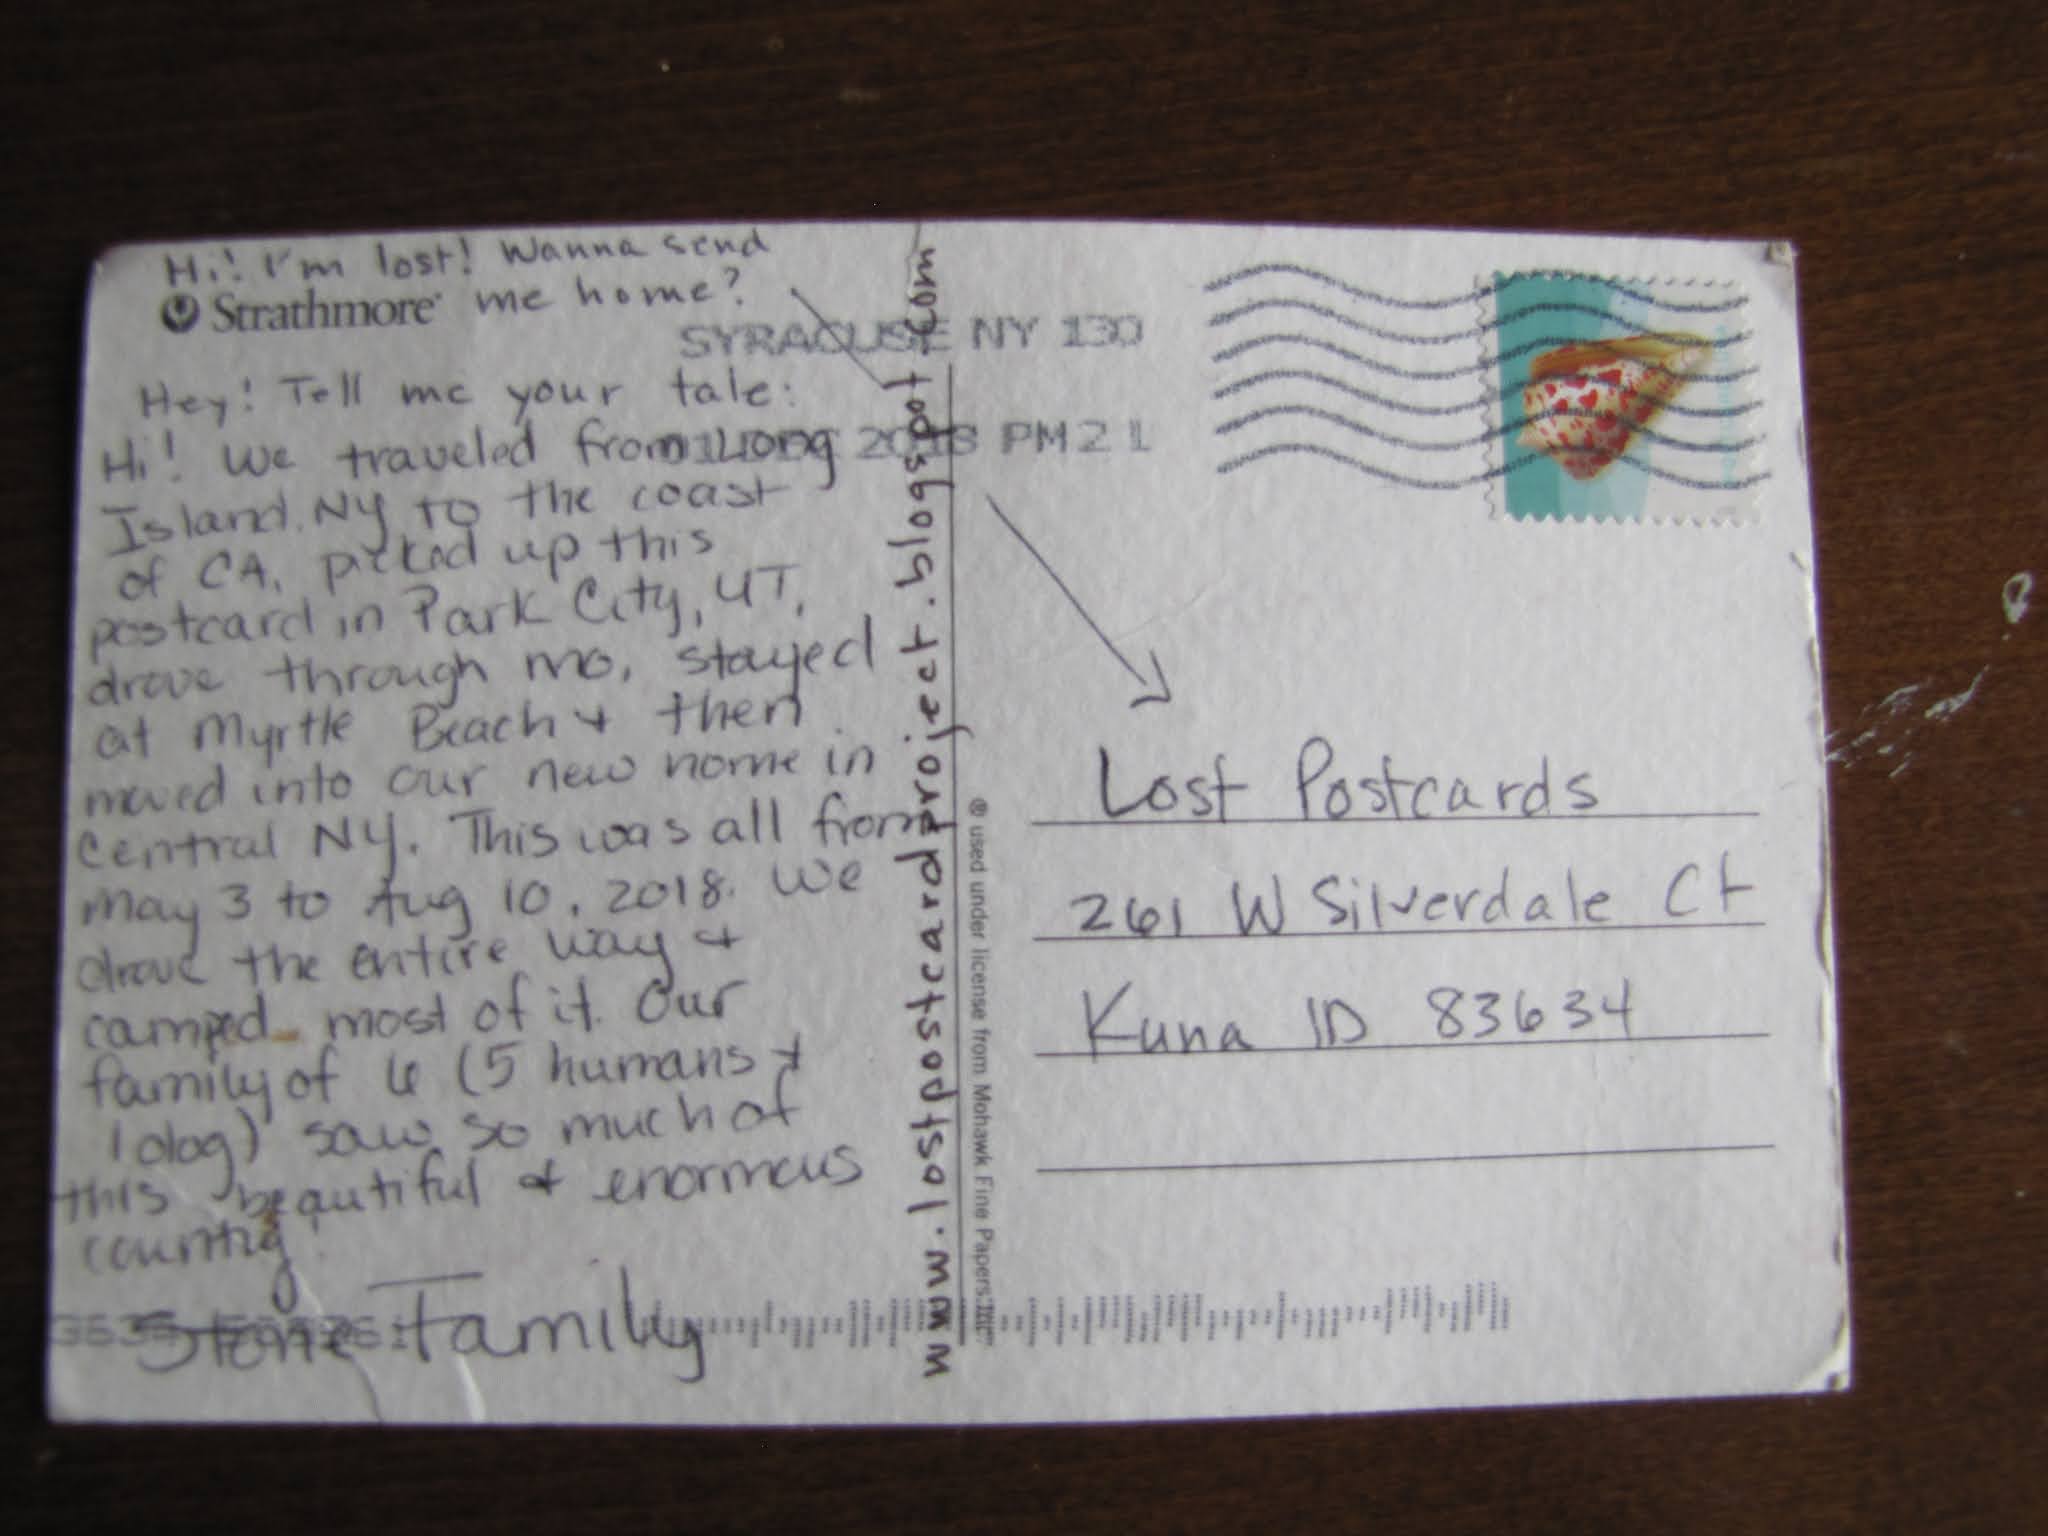 Hi! I'm lost! Wanna send
me home?
Strathmore
Hey! Tell me your tale:
Hi! We traveled from Long
Island, NY to the coast
of CA, picked up this
postcard in Park City, UT,
drove through MO, stayed
at Myrtle Beach & then
moved into our new home in
Central NY. This was all from
May 3 to Aug 10, 2018. We
drove the entire way &
camped most of it. Our
family of 6 (5 humans &
1 dog) saw so much of
this beautiful & enormous
country!
Stone Family
www.lostpostcardproject.blogspot.com
® used under license from Mohawk Fine Papers Inc.
SYRACUSE NY 130
2018 PM 2 L
Lost Postcards
261 W Silverdale Ct
Kuna ID 83634